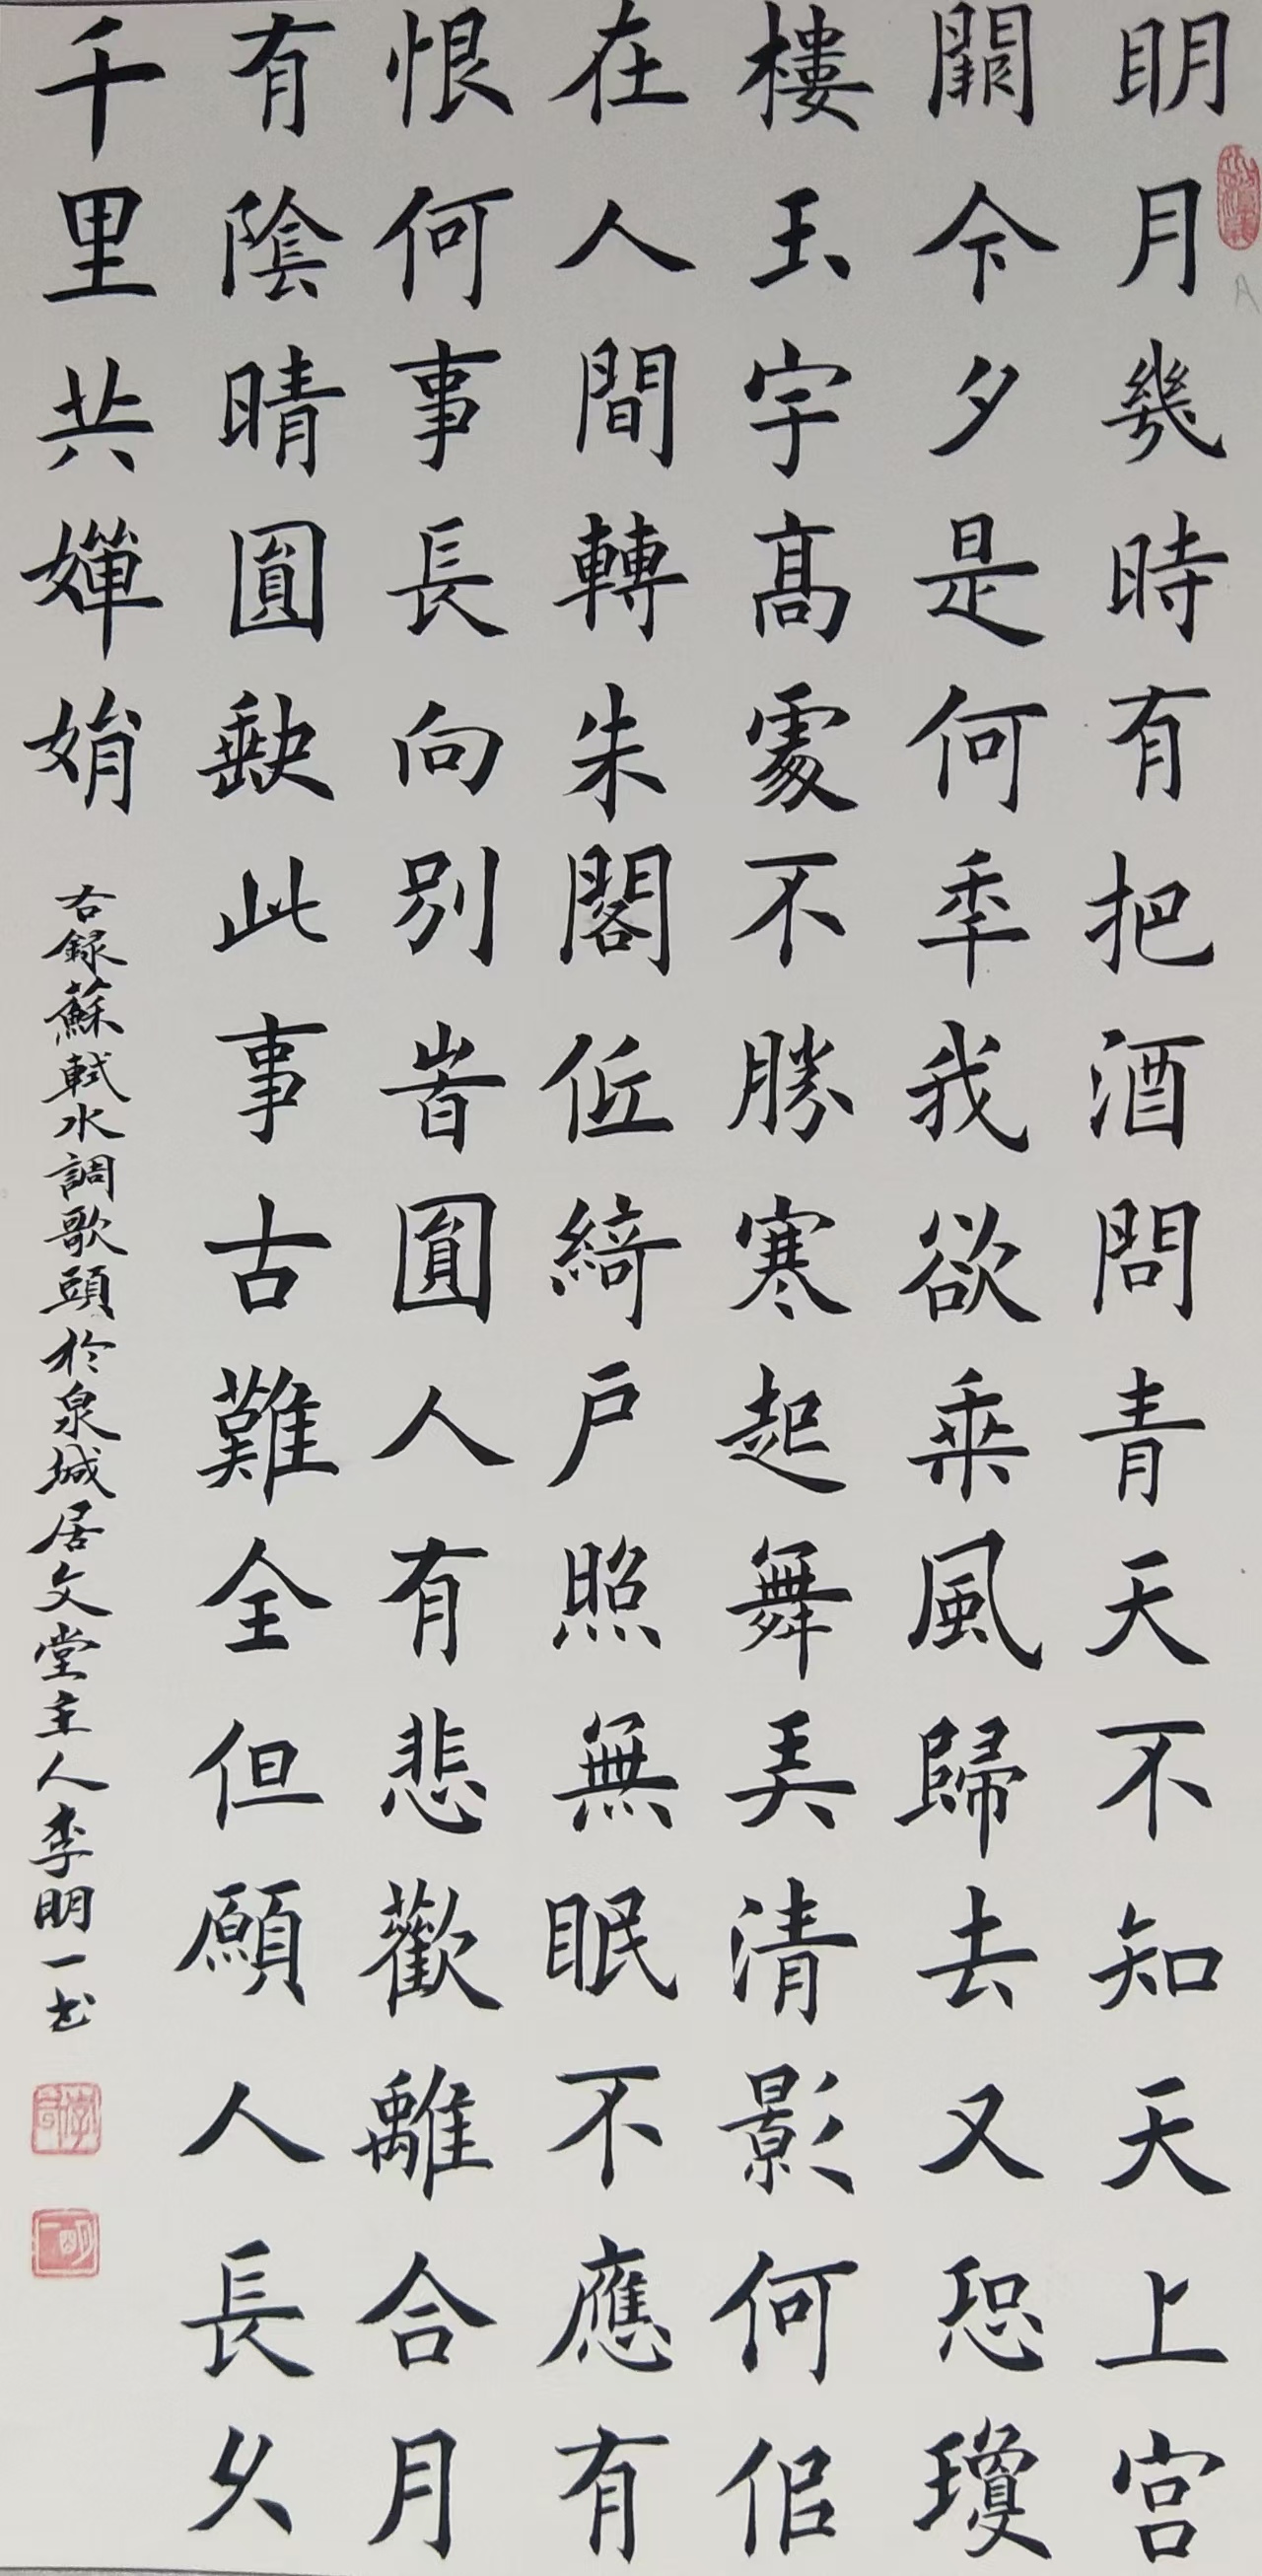 明月幾時有把酒問青天不知天上宫
闕今夕是何年我欲乘風歸去又恐瓊
樓玉宇高處不勝寒起舞弄清影何似
在人間轉朱閣低綺户照無眠不應有
恨何事長向别旹圓人有悲歡離合月
有陰晴圓缺此事古難全但願人長久
千里共嬋娟
右録蘇軾水調歌頭於泉城居文堂主人李明一书